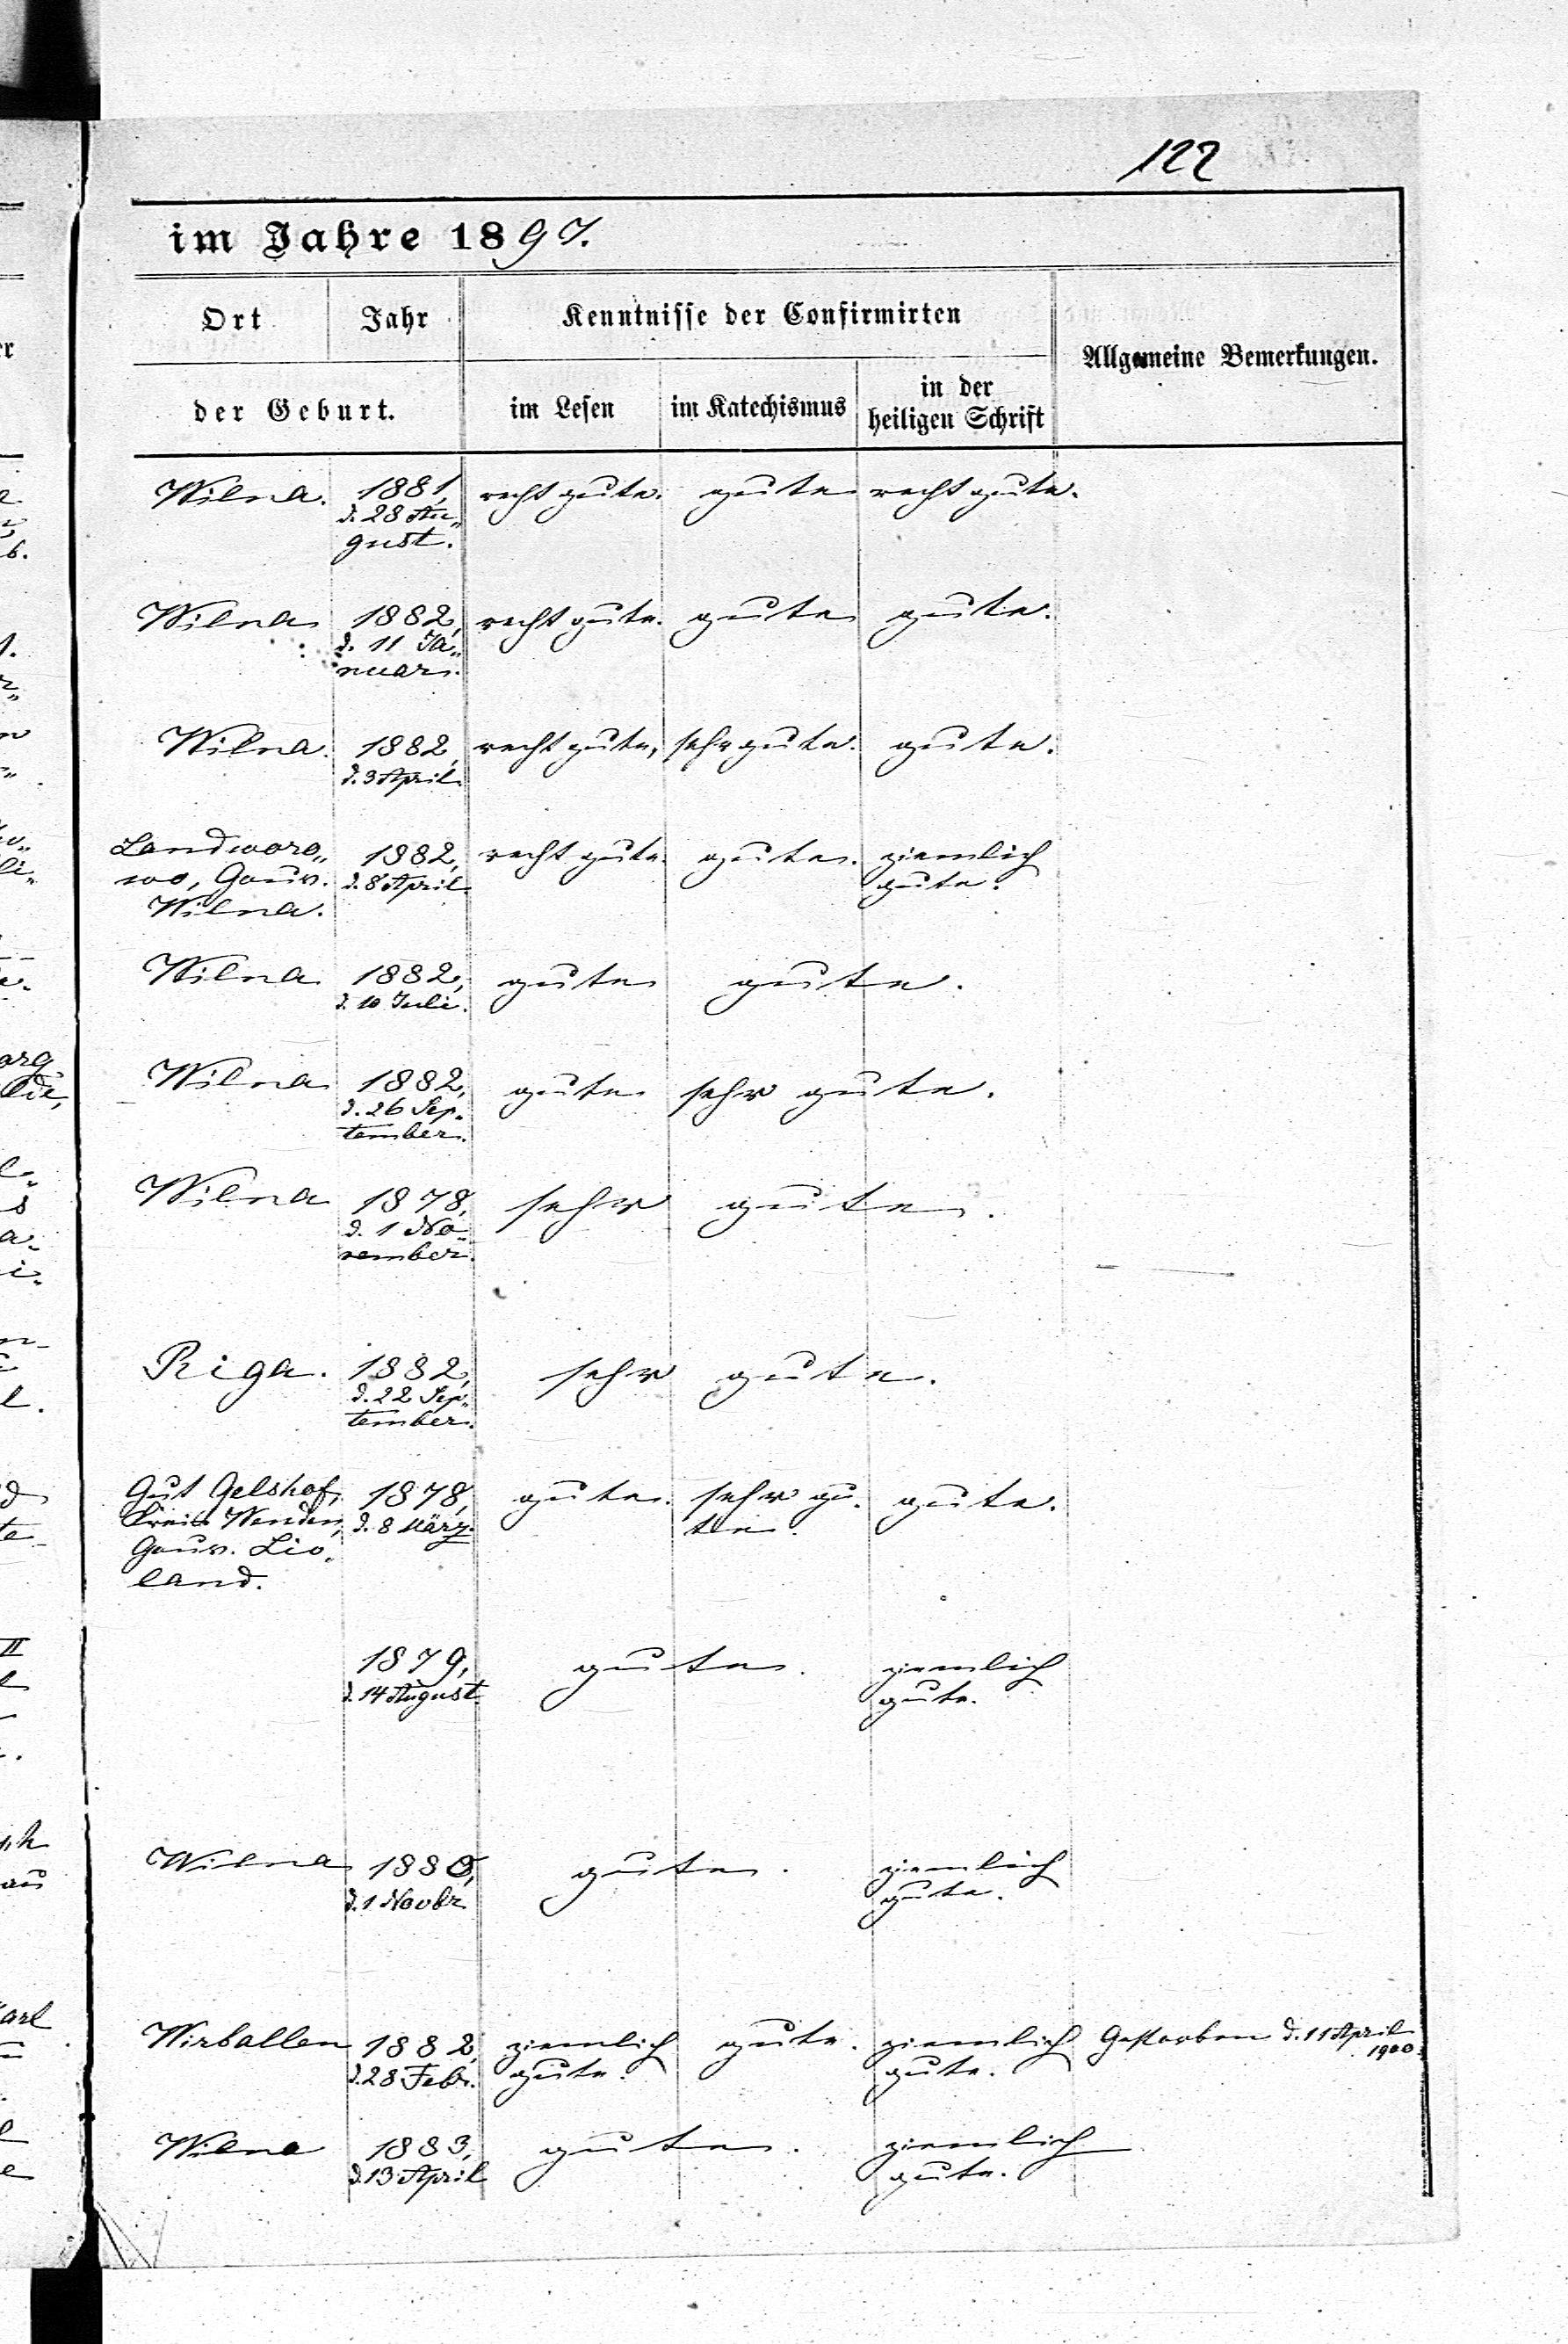 122
im Jahre 1897.
Ort Jahr Kenntnisse der Confirmirten Allgemeine Bemerkungen.
der Geburt. im Lesen im Katechismus in der heiligen Schrift
Wilna. 1881, recht gute. gute recht gute.
d. 28 Au„
gust.
Wilna 1882, recht gute. gute gute.
d. 11 Ja„
nuar.
Wilna. 1882, recht gute, sehr gute. gute.
d. 3 April.
Landworo„ 1882, recht gute. gute. ziemlich
wo, Gouv. d. 8 April. gute.
Wilna.
Wilna 1882, gute gute.
d. 10 Juli.
Wilna 1882, gute sehr gute.
d. 26 Sep„
tember.
Wilna 1878, sehr gute.
d. 1 No„
vember.
Riga. 1882, sehr gute.
d. 22 Sep„
tember.
Gut Gelshof, 1878, gute. sehr gu„ gute.
Kreis Wenden, d. 8 März. te.
Gouv. Liv„
land.
1879, gute. ziemlich
d. 14 August. gute.
Wilna 1880, gute. ziemlich
d. 1 Novbr. gute.
Wirballen 1882, ziemlich gute. ziemlich Gestorben d. 11 April
d. 28 Febr. gute. gute. 1900.
Wilna 1883, gute. ziemlich
d. 13 April gute.